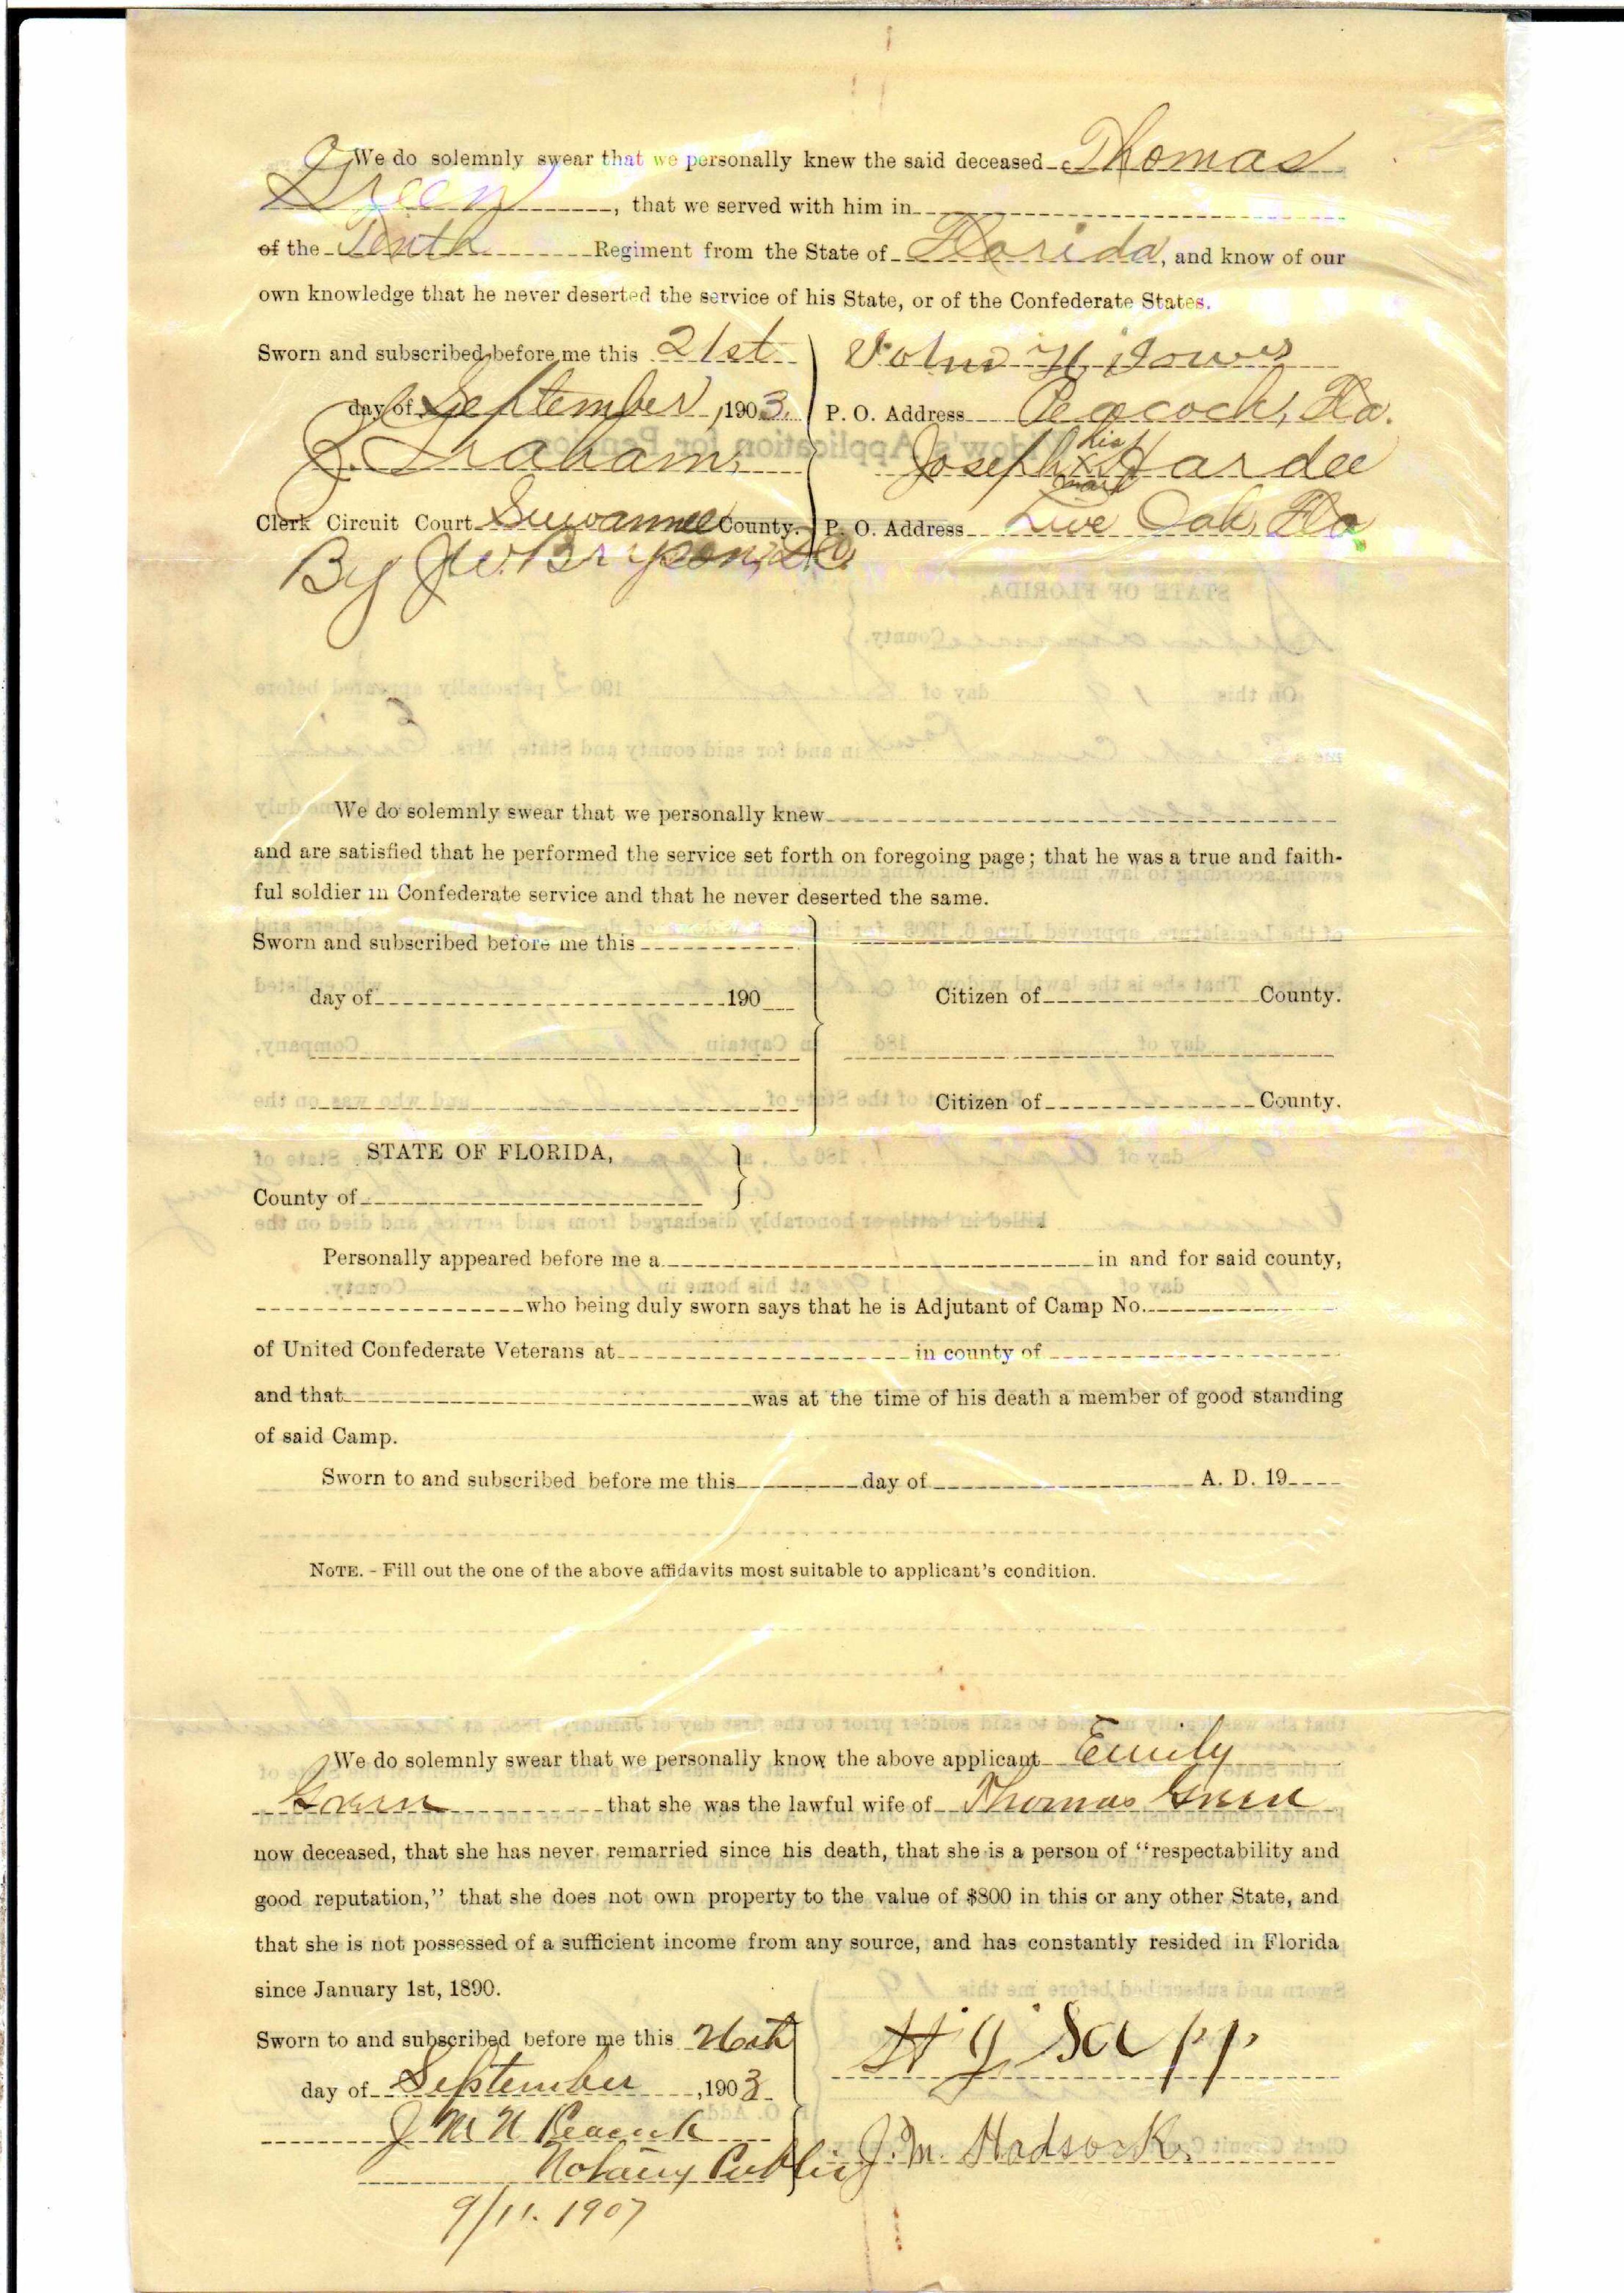 We do solemnly swear that we personally knew the said deceased Thomas
Green, that we served with him in
of the Tenth Regiment from the State of Florida, and know of our
own knowledge that he never deserted the service of his State, or of the Confederate States.
Sworn and subscribed before me this 21st
day of September, 1903.
Clerk Circuit Court Suwannee County.
John H
P. O. Address Peacock, Fla.
Joseph his x mark Hardee
P. O. Address Live Oak, Fla
We do solemnly swear that we personally knew
and are satisfied that he performed the service set forth on foregoing page; that he was a true and faith-
ful soldier in Confederate service and that he never deserted the same.
Sworn and subscribed before me this
day of 190
Citizen of County.
Citizen of County.
STATE OF FLORIDA,
County of
Personally appeared before me a in and for said county,
who being duly sworn says that he is Adjutant of Camp No.
of United Confederate Veterans at in county of
and that was at the time of his death a member of good standing
of said Camp.
Sworn to and subscribed before me this day of A. D. 19
NOTE. - Fill out the one of the above affidavits most suitable to applicant's condition.
We do solemnly swear that we personally know the above applicant Emily
Green that she was the lawful wife of Thomas Green
now deceased, that she has never remarried since his death, that she is a person of "respectability and
good reputation," that she does not own property to the value of $800 in this or any other State, and
that she is not possessed of a sufficient income from any source, and has constantly resided in Florida
since January 1st, 1890.
Sworn to and subscribed before me this 26th
day of September, 1903
J M N Peacock
Notary Public
9/11. 1907
H J Sapp
J. M. Hadsock.